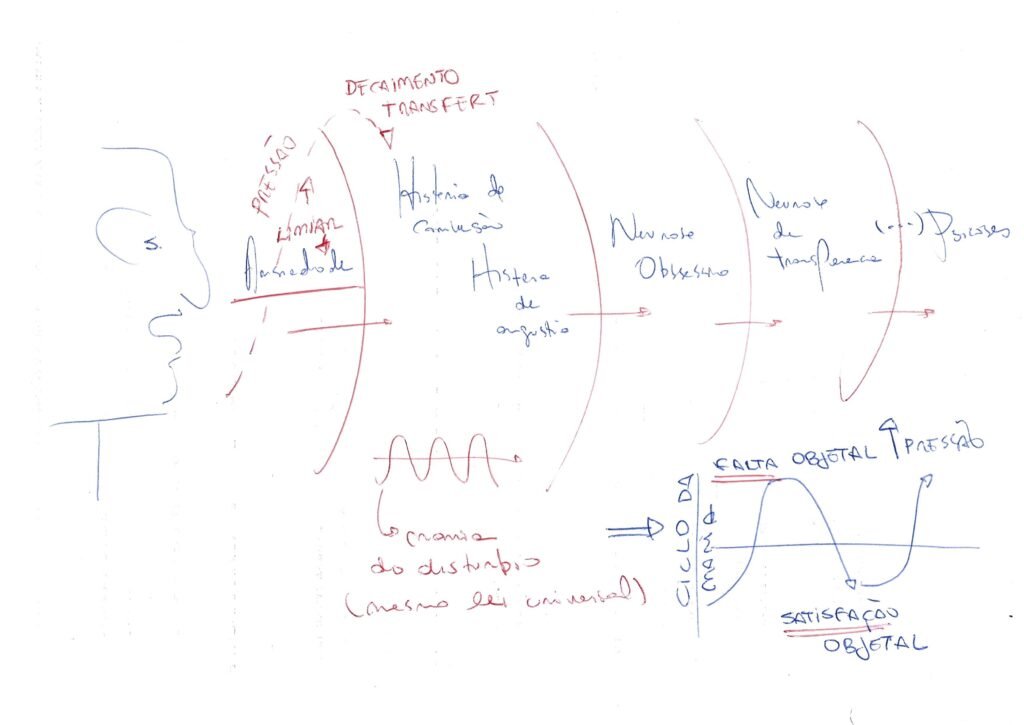 DECAIMENTO
TRANSFERT
PRESSÃO
LIMIAR
S.
Ansiedade
Histeria de
Conversão
Histeria
de
angustia
Neurose
Obsessiva
Neurose
de
transferencia
(...) Psicoses
do disturbio
(mesma lei universal)
CICLO DA
MAMADA
FALTA OBJETAL
PRESSÃO
SATISFAÇÃO
OBJETAL